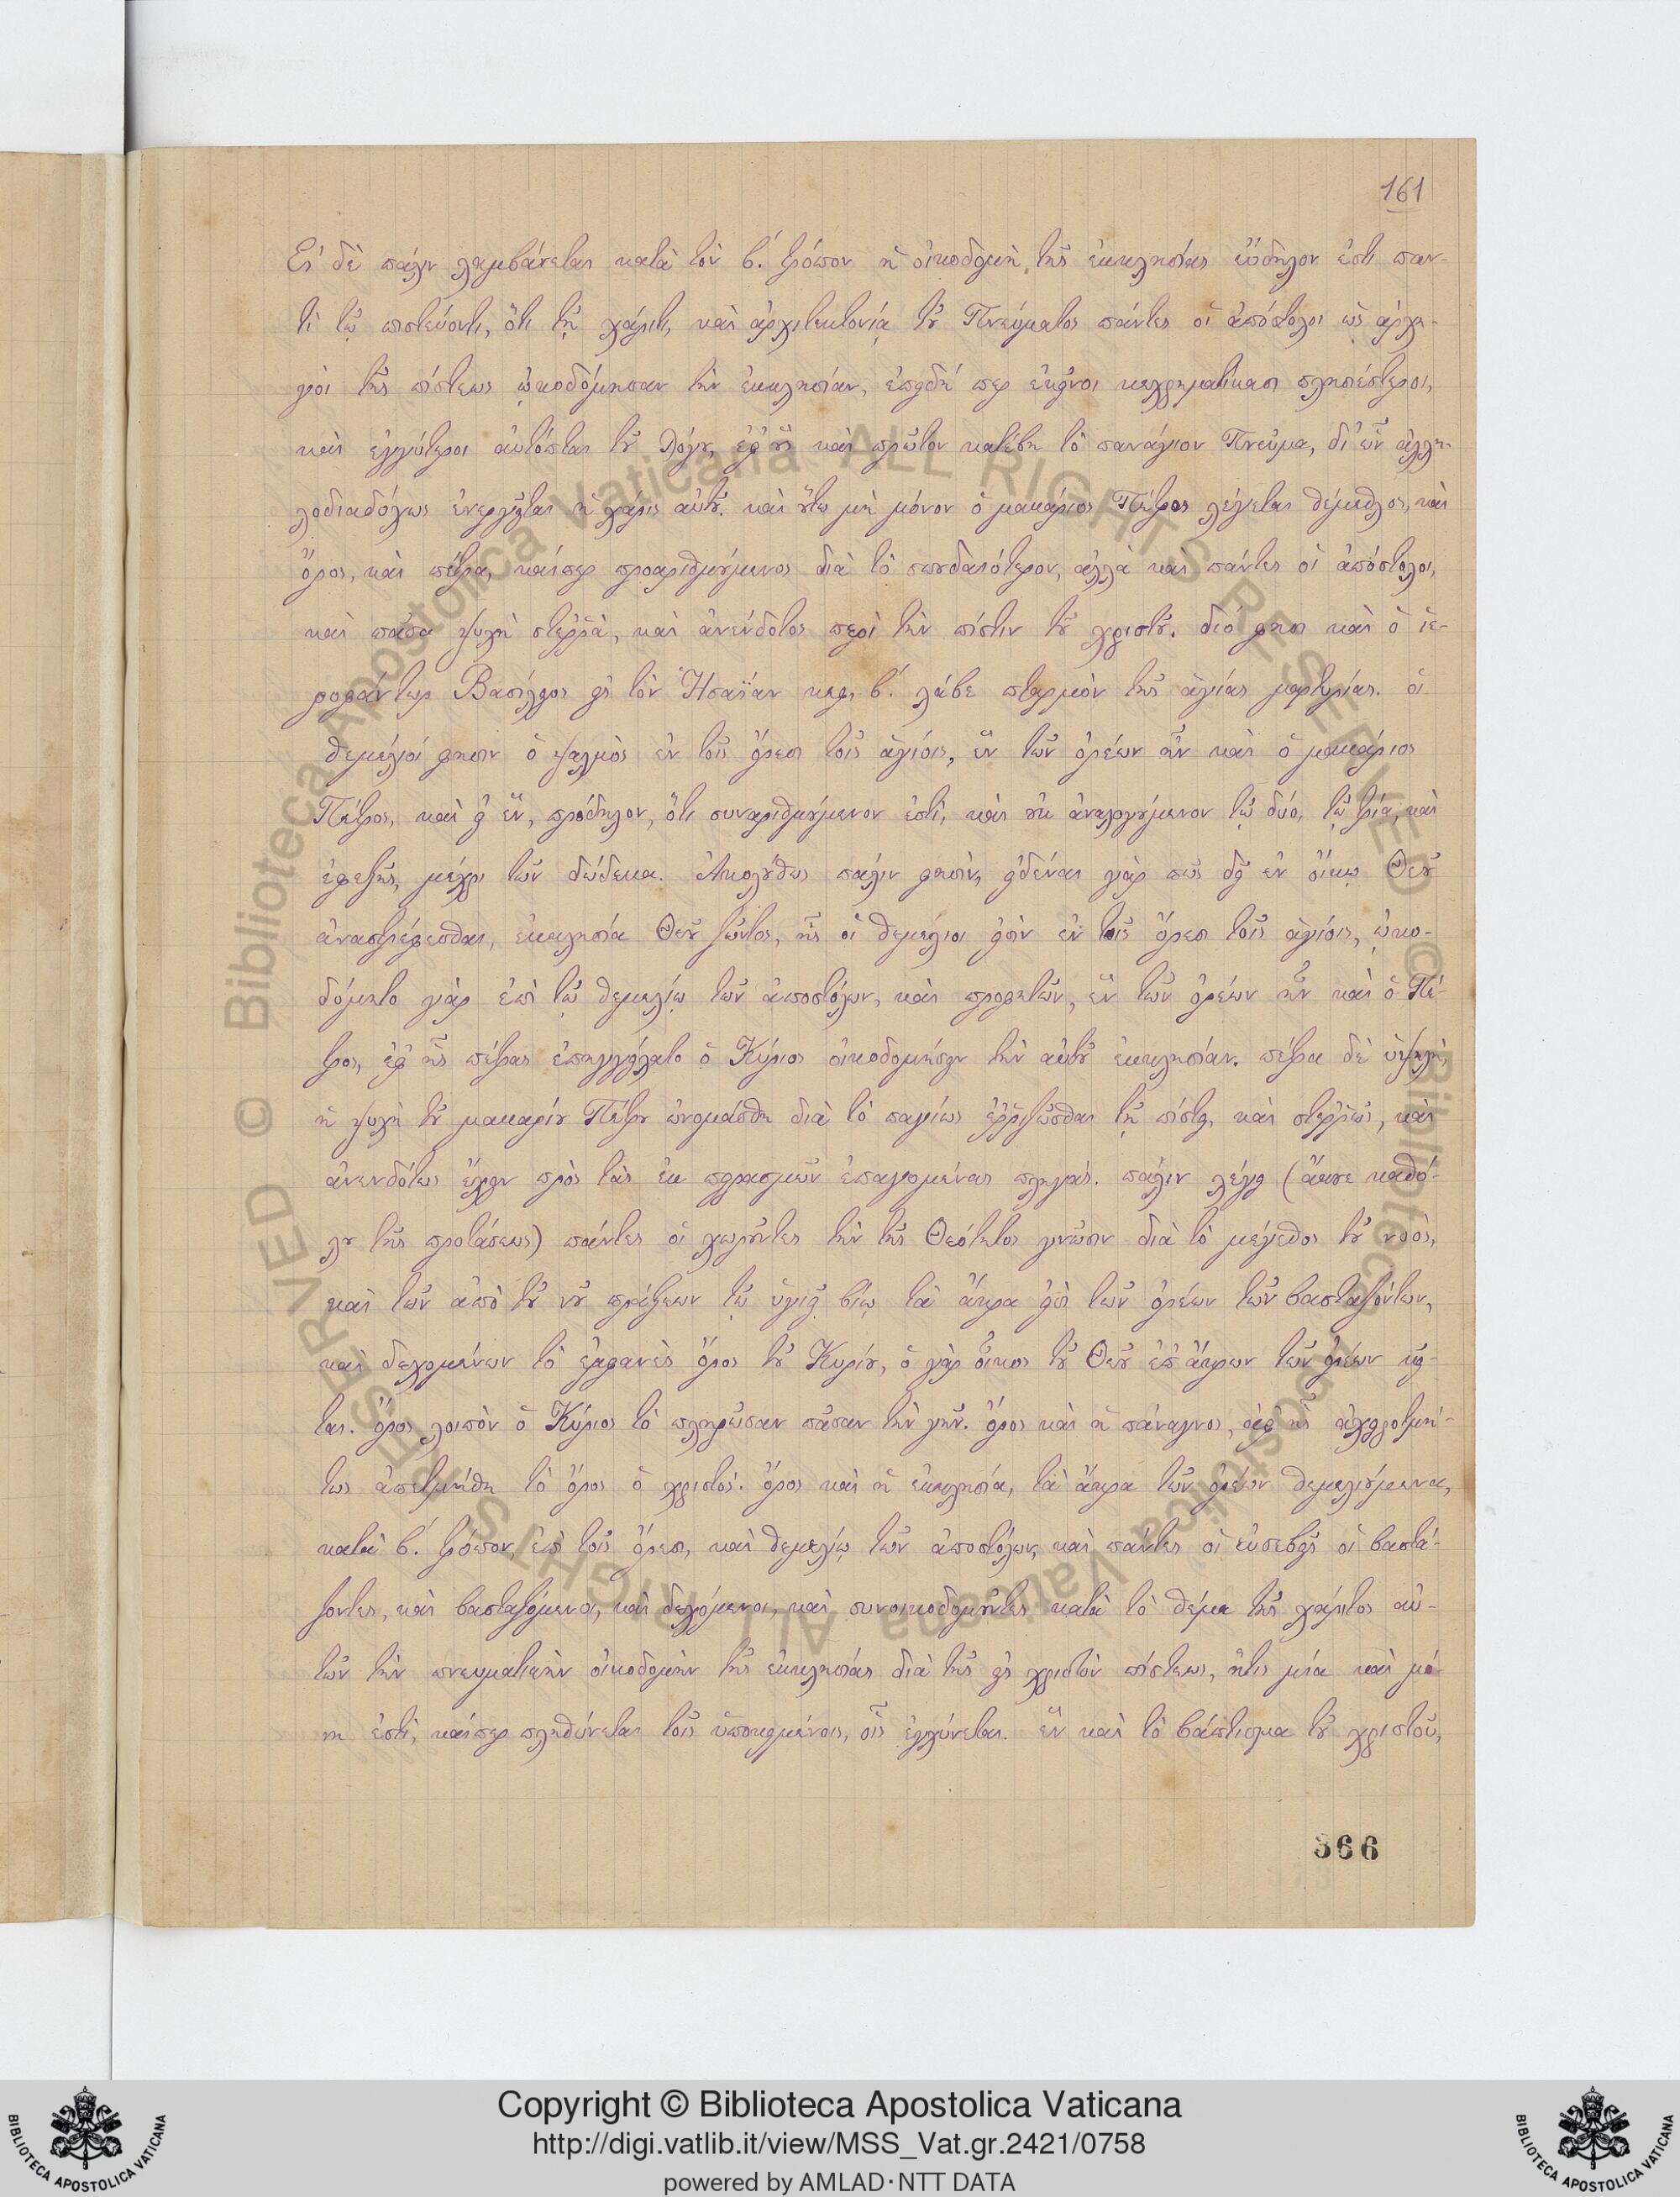 161
Εἰ δὲ πάλιν λαμβάνεται κατὰ τὸν β΄. τρόπον ἡ οἰκοδομὴ τῆς ἐκκλησίας εὔδηλον ἐστὶ παν-
τὶ τῷ πιστεύοντι, ὅτι τῇ χάριτι, καὶ ἀρχιτεκτονίᾳ τȣ͂ Πνεύματος πάντες οἱ ἀπόστολοι ὡς ἀρχη-
γοὶ τῆς πίστεως ᾠκοδόμησαν τὴν ἐκκλησίαν, ἐπειδή περ ἐκεῖνοι κεχρηματίκασι πλησιέστεροι,
καὶ ἐγγύτεροι αὐτόπται τȣ͂ Λόγȣ, ἐφ' ȣ̓ς καὶ πρῶτον κατέβη τὸ πανάγιον Πνεῦμα, δι' ὧν ἀλλη-
λοδιαδόχως ἐνεργεῖται ἡ χάρις αὐτȣ͂. καὶ ȣ̔́τω μὴ μόνον ὁ μακάριος Πέτρος λέγεται θέμεθλος, καὶ
ὄρος, καὶ πέτρα, καίπερ προαριθμȣ́μενος διὰ τὸ σπȣδαιότερον, ἀλλὰ καὶ πάντες οἱ ἀπόστολοι,
καὶ πᾶσα ψυχὴ στεῤῥὰ, καὶ ἀνένδοτος περὶ τὴν πίστιν τȣ͂ χριστȣ͂. διό φησι καὶ ὁ ἱε-
ροφάντωρ Βασίλειος εἰς τὸν Ἡσαΐαν κεφ. β΄. λάβε σταρμὸν τῆς ἁγίας μαρτυρίας. οἱ
θεμέλιοί φησιν ὁ ψαλμὸς ἐν τοῖς ὄρεσι τοῖς ἁγίοις, ἓν τῶν ὀρέων ἦν καὶ ὁ μακάριος
Πέτρος, καὶ εἰ ἓν, πρόδηλον, ὅτι συναριθμȣ́μενον ἐστὶ, καὶ ȣ̓κ ἀναλογȣ́μενον τῷ δύο, τῷ τρία, καὶ
ἐφεξῆς, μέχρι τῶν δώδεκα. Ἀκολȣ́θως πάλιν φησὶν, εἰδέναι γὰρ πῶς δεῖ ἐν οἴκῳ Θεȣ͂
ἀναστρέφεσθαι, ἐκκλησία Θεȣ͂ ζῶντος, ἧς οἱ θεμέλιοι εἰσὶν ἐν τοῖς ὄρεσι τοῖς ἁγίοις, ᾠκο-
δόμητο γὰρ ἐπὶ τῷ θεμελίῳ τῶν ἀποστόλων, καὶ προφετῶν, ἓν τῶν ὀρέων ἦν καὶ ὁ Πέ-
τρος, ἐφ' ἧς πέτρας ἐπηγγείλατο ὁ Κύριος οἰκοδομήσειν τὴν αὐτȣ͂ ἐκκλησίαν. πέτρα δὲ ὑψηλὴ,
ἡ ψυχὴ τȣ͂ μακαρίȣ Πέτρȣ ὠνομάσθη διὰ τὸ παγίως ἐῤῥιζῶσθαι τῇ πίστει, καὶ στεῤῥῶς, καὶ
ἀνενδότως ἔχειν πρὸς τὰς ἐκ πειρασμῶν ἐπαγομένας πληγάς. πάλιν λέγει (ἄκȣε καθό-
λȣ τῆς προτάσεως) πάντες οἱ χωρȣ͂ντες τὴν τῆς Θεότητος γνῶσιν διὰ τὸ μέγεθος τȣ͂ νοὸς,
καὶ τῶν ἀπὸ τȣ͂ νȣ͂ πράξεων τῷ ὑγιεῖ βίῳ τὰ ἄκρα εἰσὶ τῶν ὀρέων τῶν βασταζόντων,
καὶ δεχομένων τὸ ἐμφανὲς ὄρος τȣ͂ Κυρίȣ, ὁ γὰρ οἶκος τȣ͂ Θεȣ͂ ἐπ' ἄκρων τῶν ὀρέων κεῖ-
ται. ὄρος λοιπὸν ὁ Κύριος τὸ πληρῶσαν πᾶσαν τὴν γῆν. ὄρος καὶ ἡ πάναγνος, ἀφ' ἧς ἀχειροτμή-
τως ἀπετμήθη τὸ ὄρος ὁ χριστός. ὄρος καὶ ἡ ἐκκλησία, τὰ ἄκρα τῶν ὀρέων θεμελιȣ́μενα,
κατὰ β΄. τρόπον, ἐπὶ τοῖς ὄρεσι, καὶ θεμελίῳ τῶν ἀποστόλων, καὶ πάντες οἱ εὐσεβεῖς οἱ βαστά-
ζοντες, καὶ βασταζόμενοι, καὶ δεχόμενοι, καὶ συνοικοδομȣ͂ντες κατὰ τὸ θέμα τῆς χάριτος αὐ-
τῶν τὴν πνευματικὴν οἰκοδομὴν τῆς ἐκκλησίας διὰ τῆς εἰς χριστὸν πίστεως, ἥτις μία καὶ μό-
νη ἐστὶ, καίπερ πληθύνεται τοῖς ὑποκειμένοις, οἷς ἐγχύνεται. ἓν καὶ τὸ βάπτισμα τȣ͂ χριστοῦ,
366
Copyright © Biblioteca Apostolica Vaticana
http://digi.vatlib.it/view/MSS_Vat.gr.2421/0758
powered by AMLAD·NTT DATA